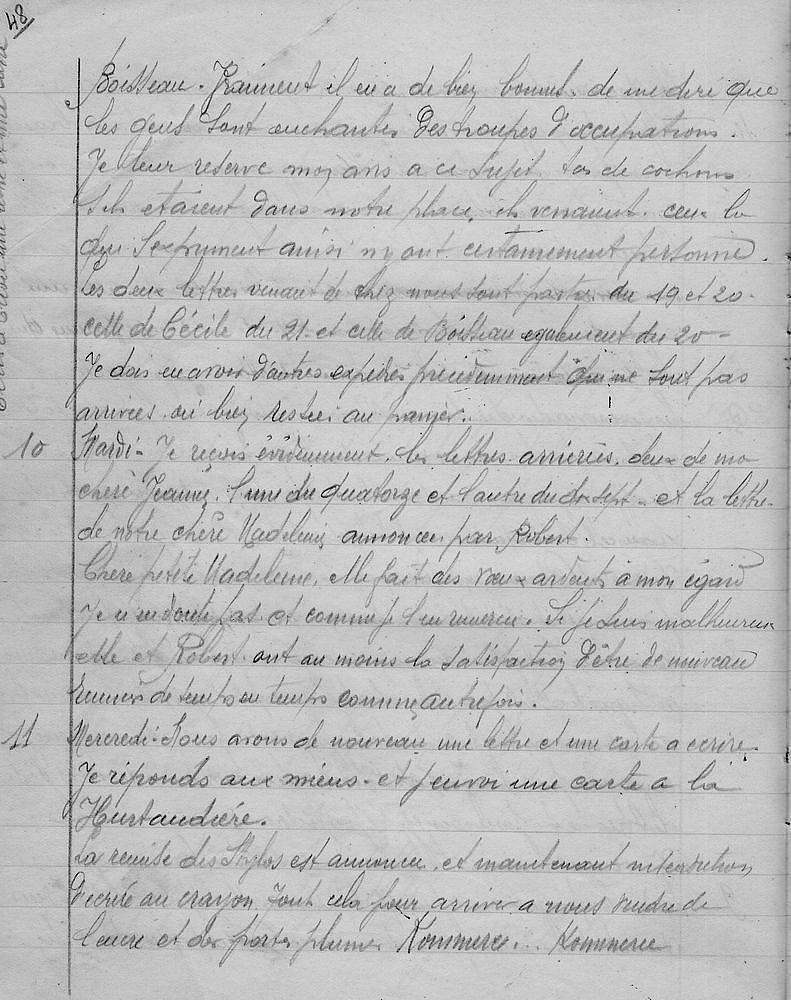 48
Boisseau. Vraiment il en a de bien bonnes de me dire que
les gens sont enchantés des troupes d'occupations.
Je leur reserve mon avis a ce sujet tas de cochons
s'ils etaient dans notre place, ils verraient. ceux la
qui s'expriment ainsi n'y ont certainement personne.
Les deux lettres venant de chez nous sont parties du 19 et 20.
celle de Cécile du 21 et celle de Boisseau egalement du 20 -
Je dois en avoir d'autres expédiés précédemment qui ne sont pas
arrivées ou bien restées au panier.
10 Mardi - Je reçois évidemment les lettres arrierées. deux de ma
chere Jeanne, l'une du quatorze et l'autre du sept. et la lettre
de notre chère Madeleine annoncée par Robert.
Chere petite Madeleine, elle fait des vœux ardents à mon égard
Je n'en doute pas et comme je l'en remercie. Si je suis malheureux
elle et Robert ont au moins la satisfaction d'être de nouveau
reunis de temps en temps comme autrefois.
11 Mercredi - Nous avons de nouveau une lettre et une carte a ecrire.
Je réponds aux miens - et j'envoi une carte a la
Hurtaudière.
La remise des Stylos est annoncée, et maintenant interdiction
d'ecrire au crayon. Tout cela pour arriver a nous vendre de
l'encre et des portes plumes Kommerce... Kommerce